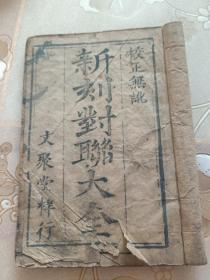 校正無訛
新刻對聯大全
文聚堂梓行